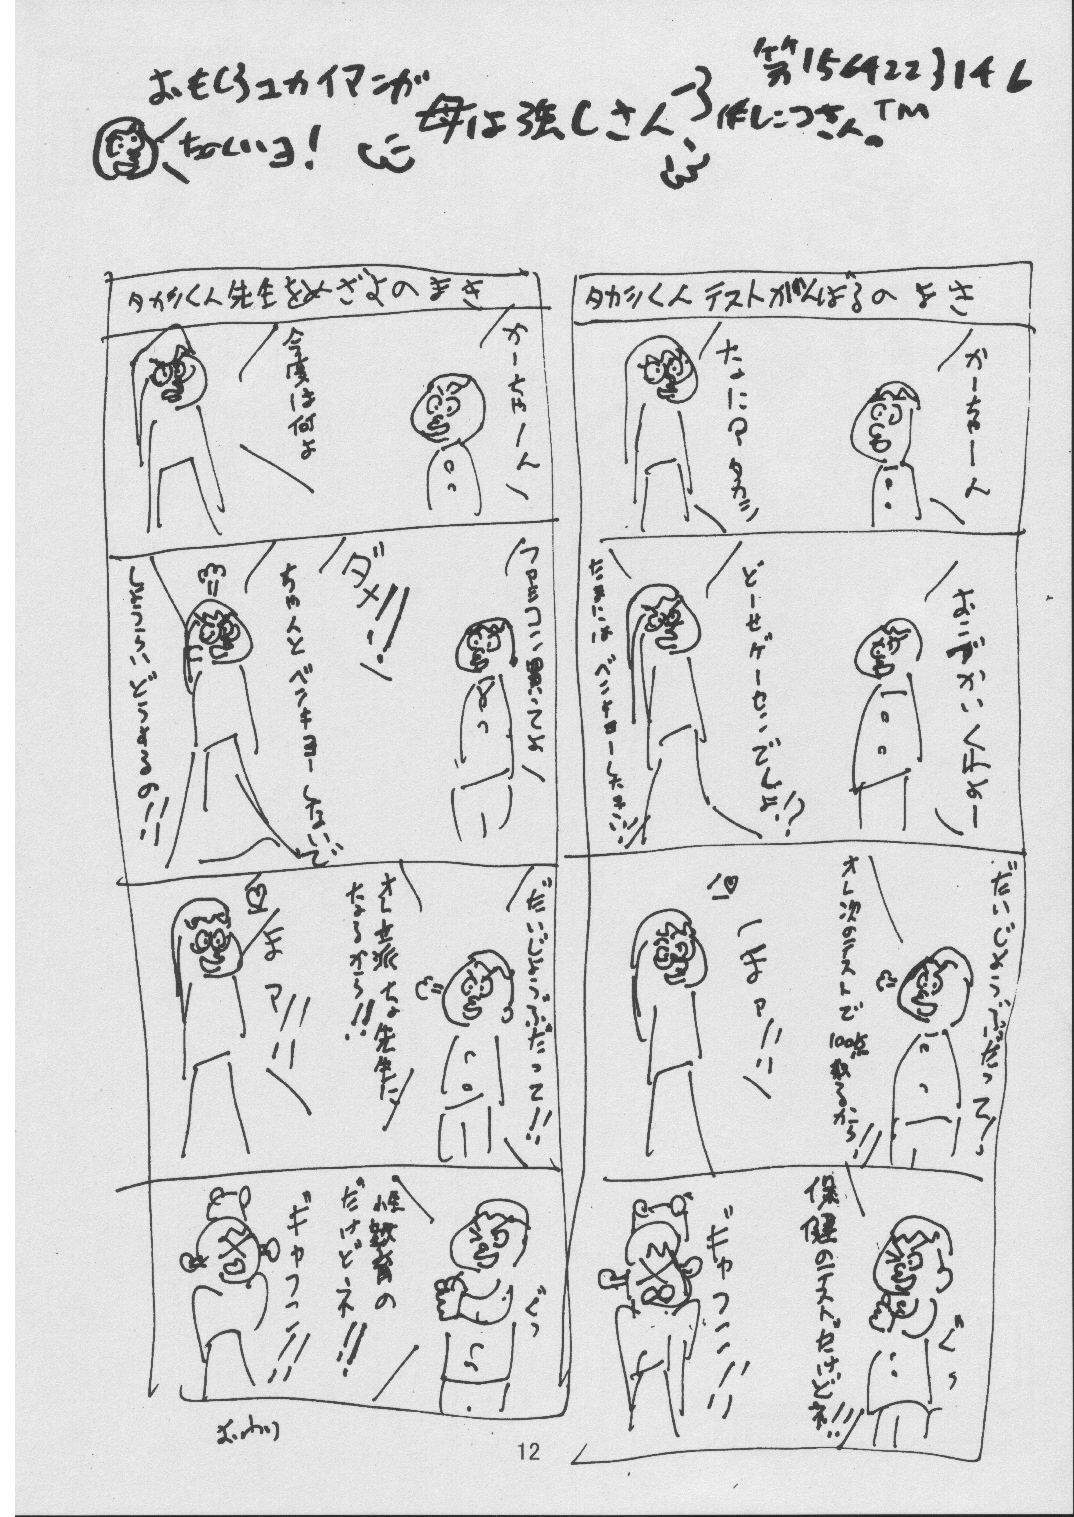 第156422
おもしろユカイマンガ
母は強しさん
作しこつさん。TM
タカシくん テストがんばるの まき
かーちゃーん
なに？タカシ
おこづかいくれよー
どーせゲーセンでしょ!?
たまにはベンキョーしたまい!!
だいじょうぶだって!
オレ次のテストで
100点取るから!!
まァ!!
保健のテストだけどネ!!
ぐっ
ギャフン!!
タカシくん先生をめざすの まき
かーちゃーん
今度は何よ
ダメ!!
ちゃんとベンキョーしないで
しょうらいどうするの!!
だいじょうぶだって!!
オレ立派な先生に
なるから!!
まァ!!
性教育の
だけどネ!!
ぐっ
ギャフン!!
おわり
12